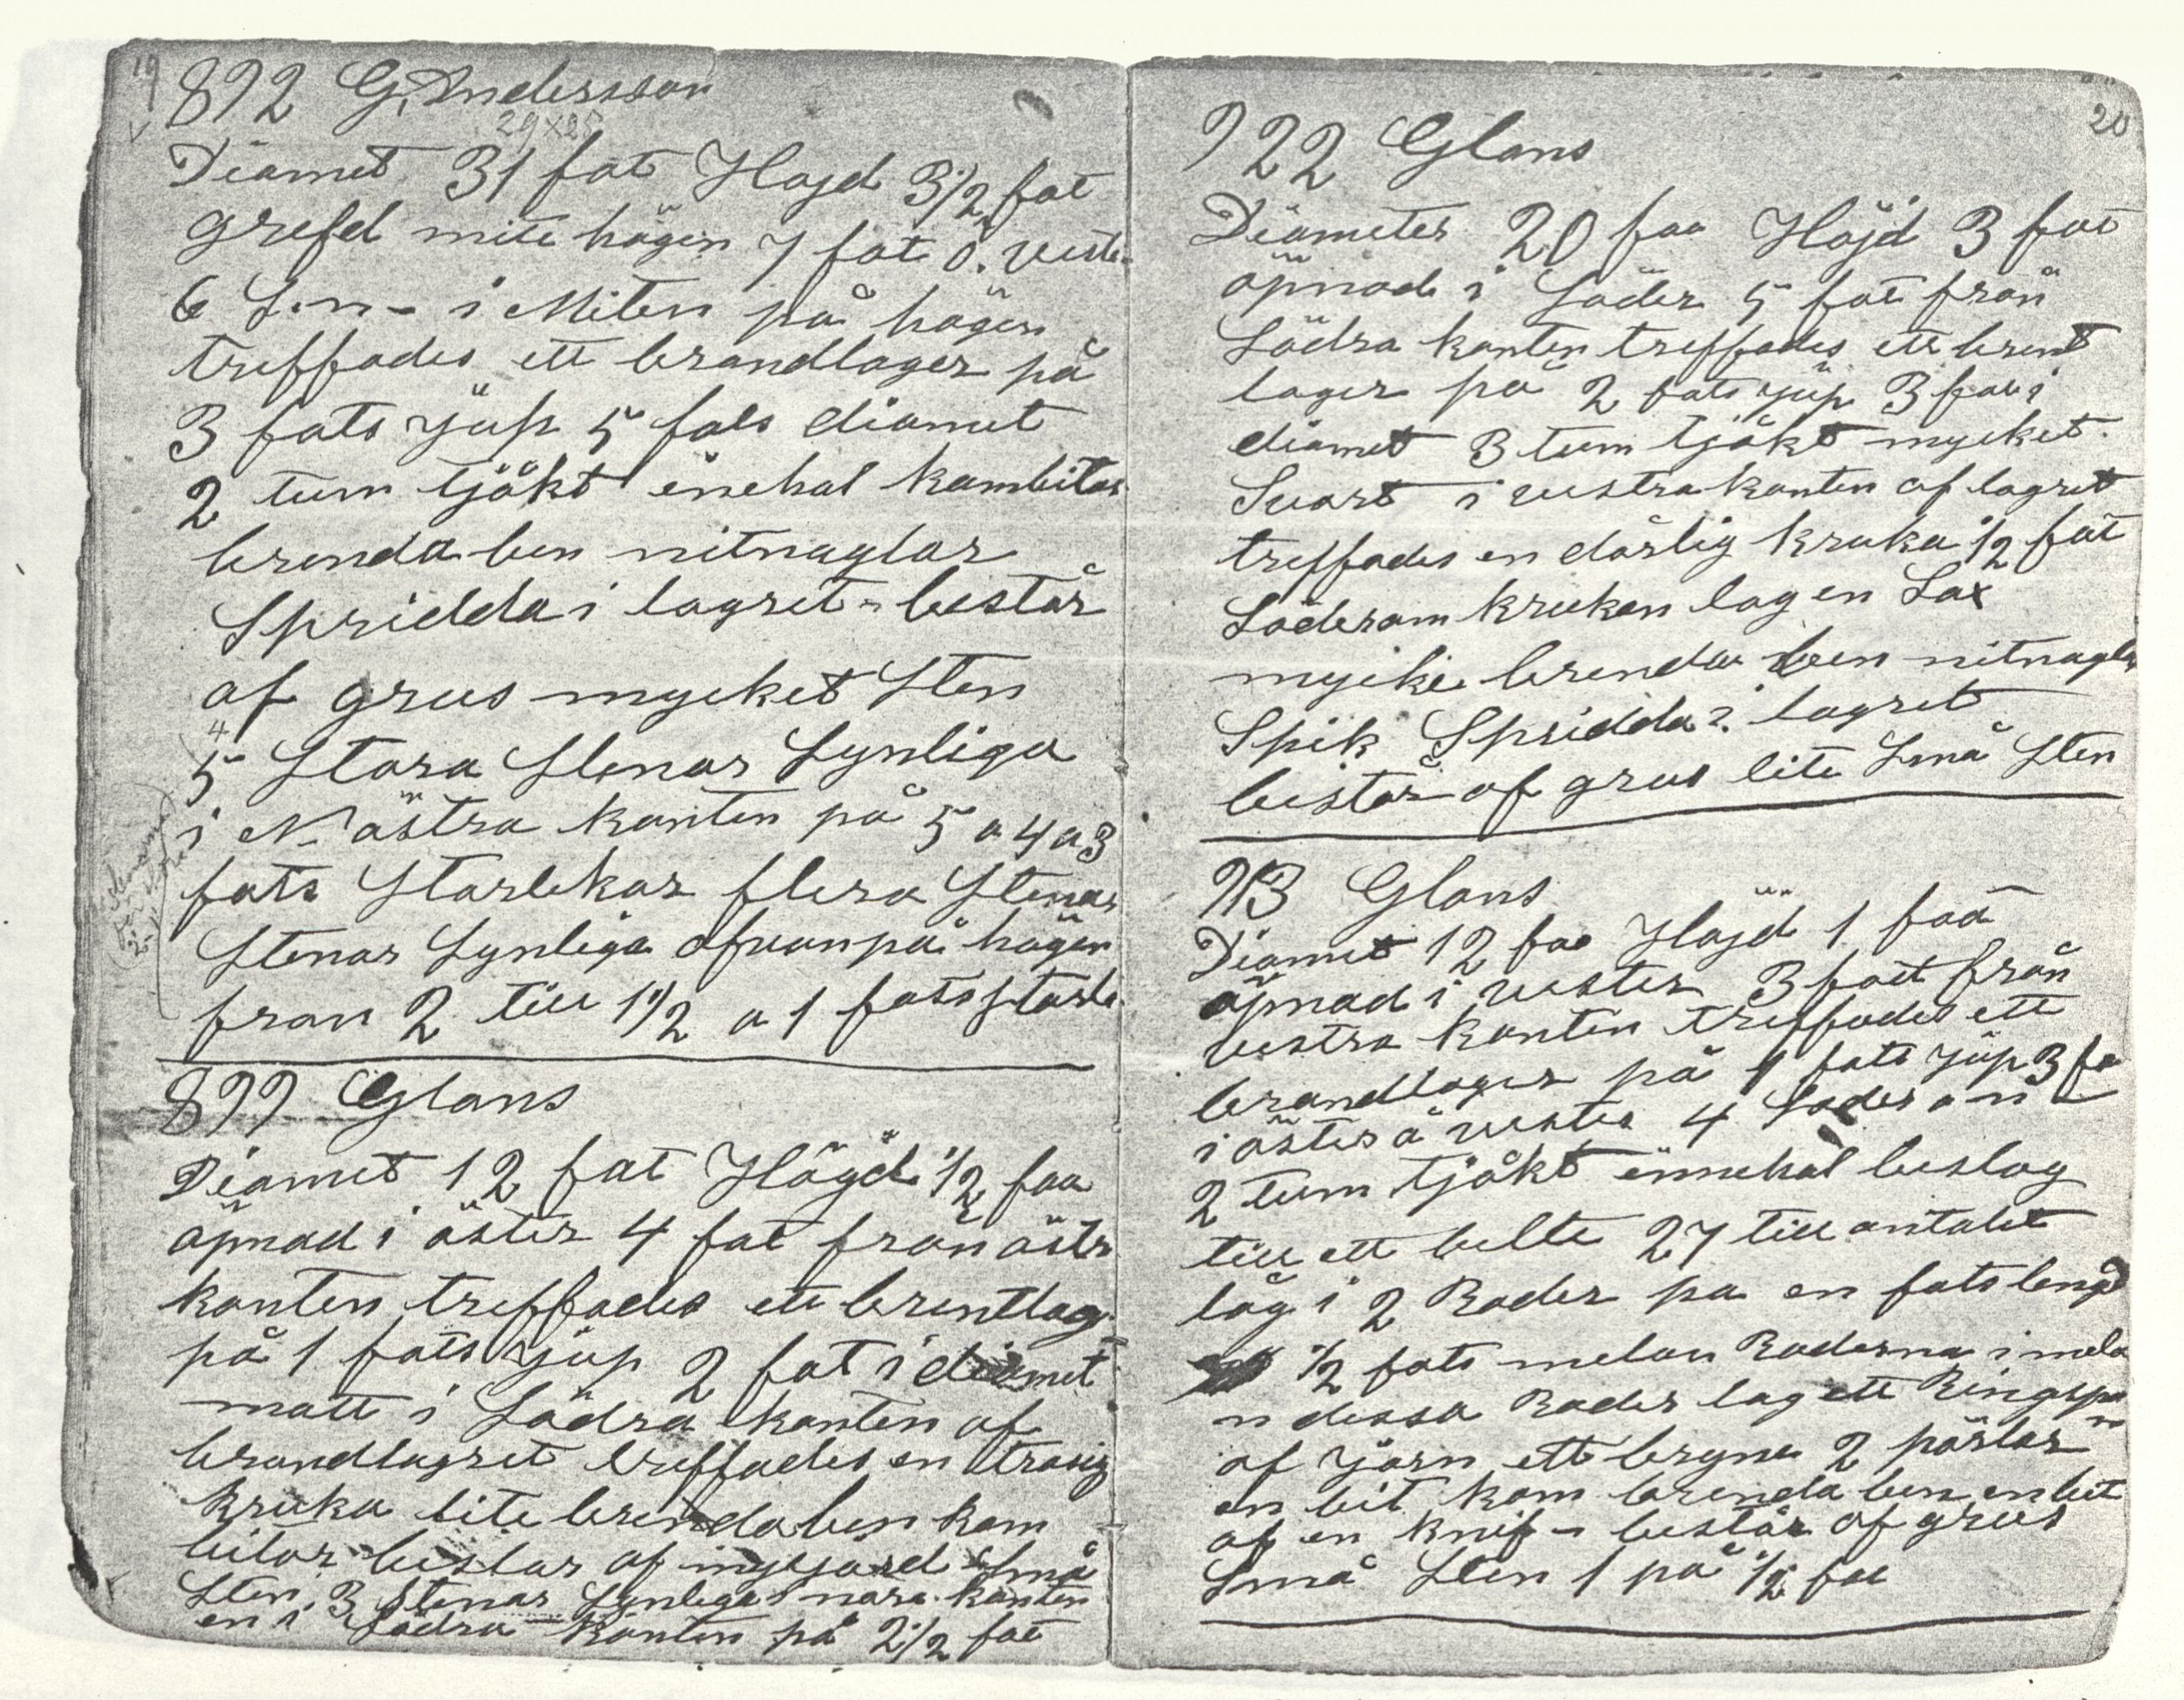 19
892 G. Andersson
29x28
Diamet 31 fot Höjd 3 1/2 fot
grefd mitt högen 7 fot ö. vest.
6 S. n - i Miten på högen
treffades ett brandlager på
3 fots jup 5 fots diamet
2 tum tjökt inehal kambitar
brenda ben nitnaglar
Spridda i lagret - består
af grus mycket Sten
5 Stora Stenar Synliga
i N. östra kanten på 5 a 4 a 3
fots Storlekar flera Stenar
Stenar Synliga ofvan på högen
fran 2 till 1 1/2 a 1 fots storle
899 Glans
Diamet 12 fot Högd 1/2 fot
öpnad i öster 4 fot från östr
kanten treffades ett brentlag
på 1 fots jup 2 fot i diamet
matt i Södra kanten af
brandlagret treffades en trasig
kruka lite brenda ben kam
bitar bestar af mycjord Små
Sten. 3 Stenar Synliga nara kanten
en i Södra kanten på 2 1/2 fot
20
922 Glans
Diameter 20 fot Höjd 3 fot
öpnad i Söder 5 fot från
Södra kanten treffades ett brent
lager på 2 fots jup 3 fot i
diamet 3 tum tjökt mycket
Svart i vestra kanten af lagret
treffades en dårlig kruka 1/2 fot
Söder om krukan lag en Sax
mycke brenda ben nitnagla
Spik Spridda i lagret
består af grus lite Små Sten
913 Glans
Diamet 12 fot Höjd 1 fot
öpnad i vester 3 fot från
vestra kanten treffades ett
brandlager på 1 fots jup 3 fo
i öster å vester 4 Söder o n
2 tum tjökt innehal beslag
till ett belte 27 till antalet
låg i 2 Rader pa en fots lengd
1/2 fots melan Raderna i mela
n dessa Rader lag ett Ringspen
af järn ett bryne 2 pärlar
en bit kam brenda ben en bit
af en knif - består af grus
Små Sten 1 på 1/2 fot